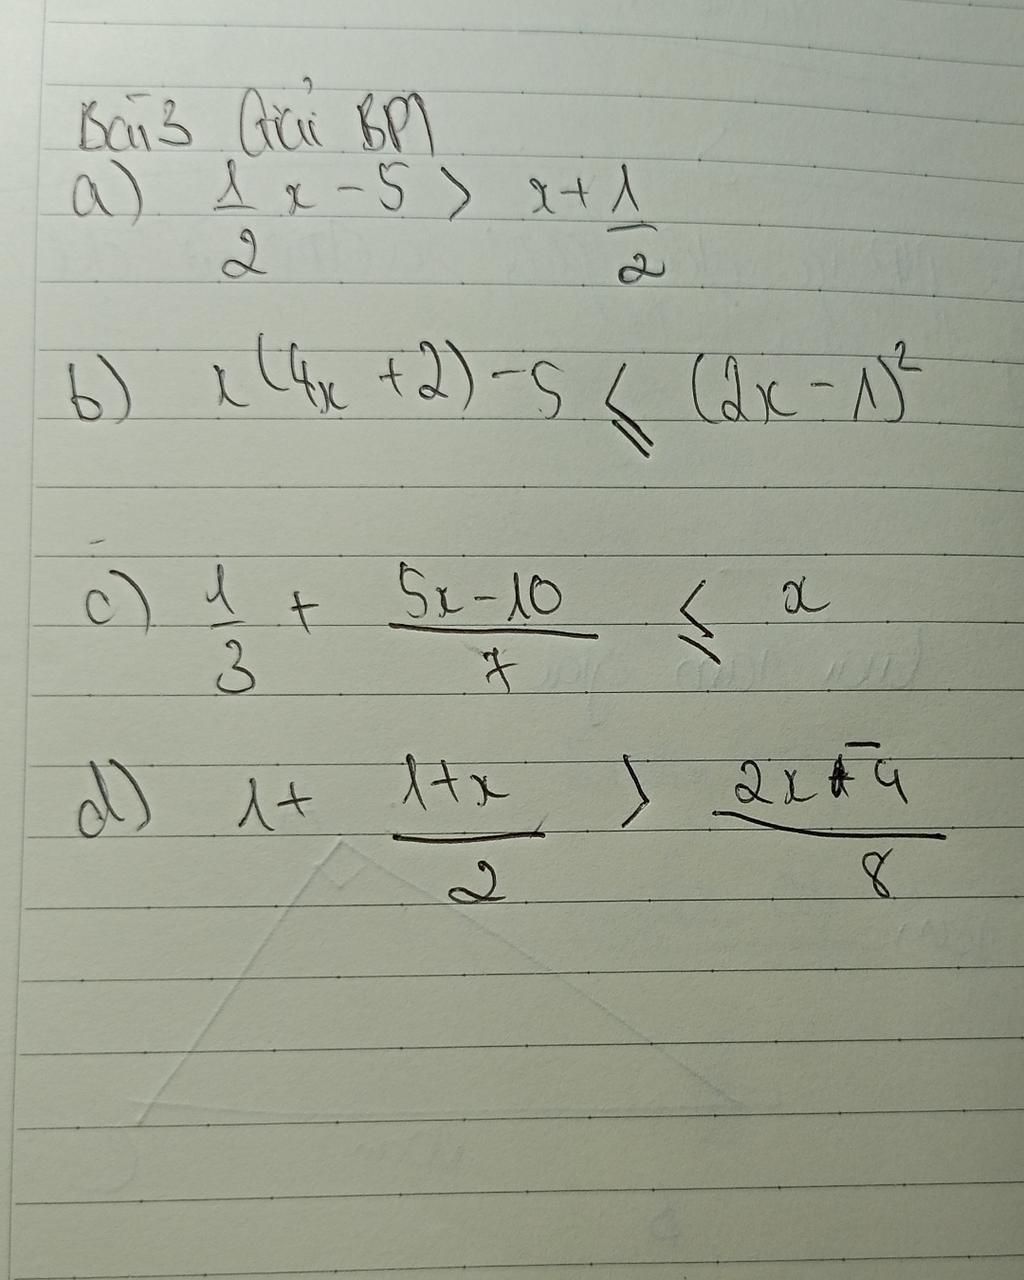 Bài 3 Giải BPT
a) \frac{1}{2} x - 5 > x + \frac{1}{2}
b) x(4x + 2) - 5 ≤ (2x - 1)²
c) \frac{1}{3} + \frac{5x - 10}{7} ≤ x
d) 1 + \frac{1 + x}{2} > \frac{2x - 4}{8}